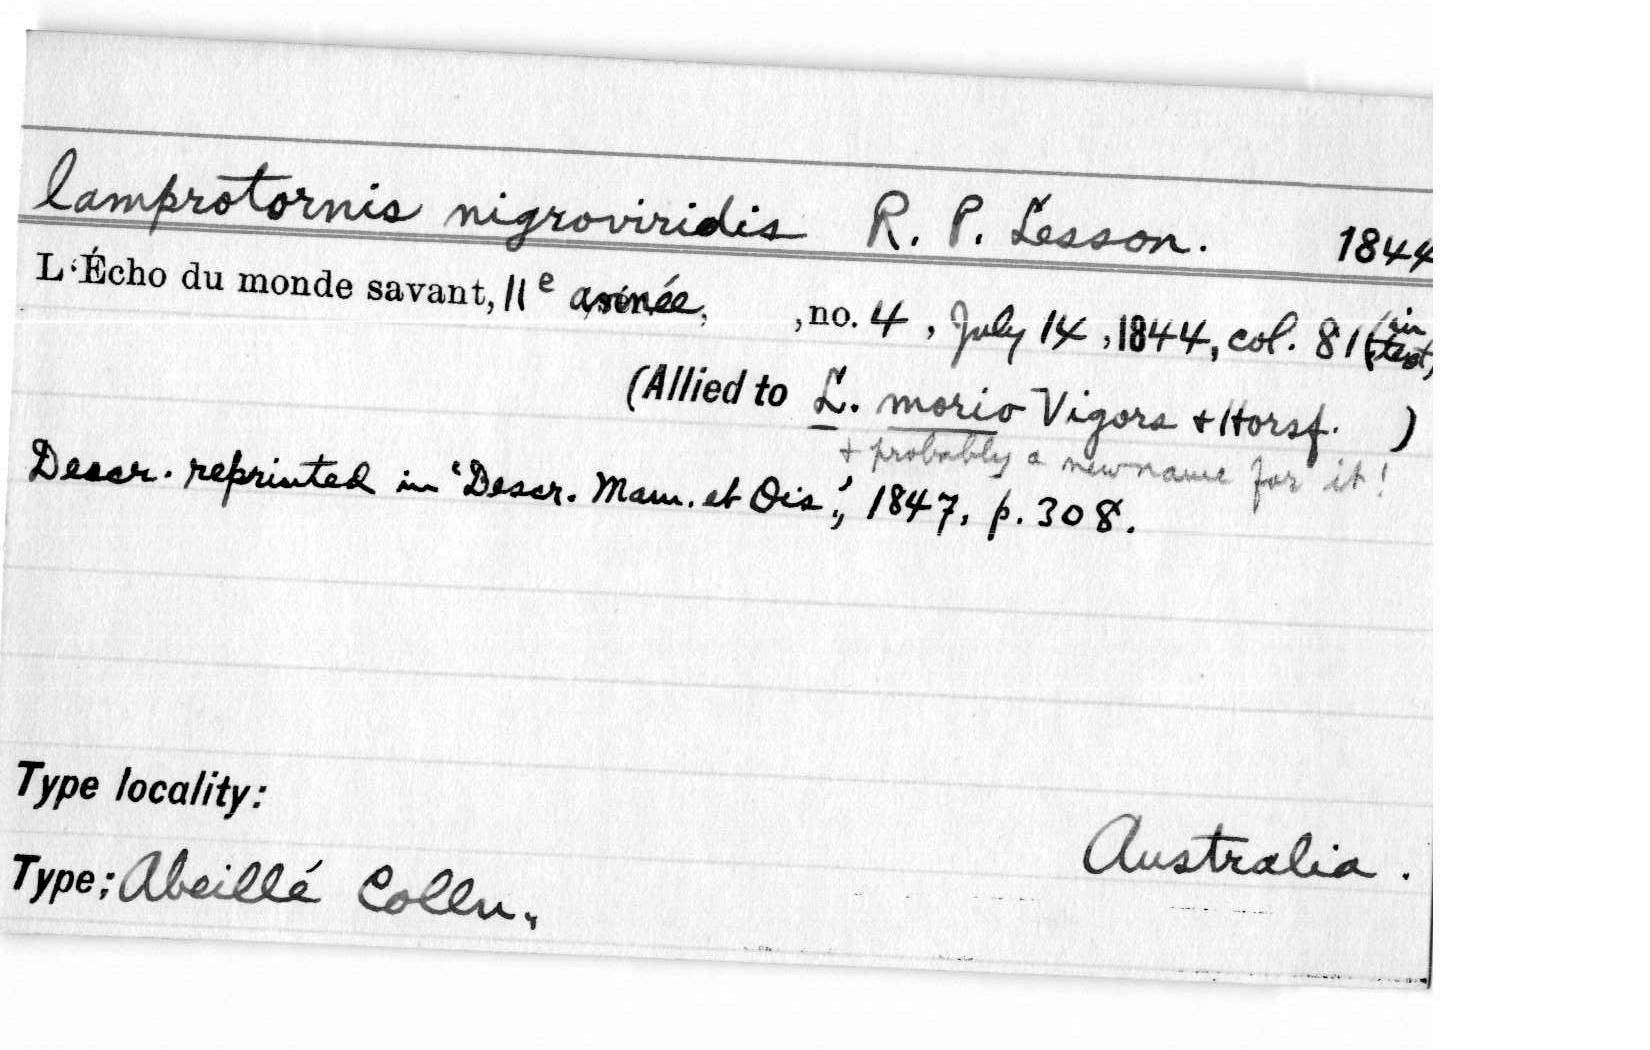 lamprotornis nigroviridis R. P. Lesson. 1844
L'Écho du monde savant, 11e année, , no. 4, July 14, 1844, col. 81 (in text)
(Allied to L. morio Vigors + Horsf. )
+ probably a new name for it!
Descr. reprinted in 'Descr. Mam. et Ois.', 1847, p. 308.
Type locality:
Australia.
Type: Abeillé Colln.